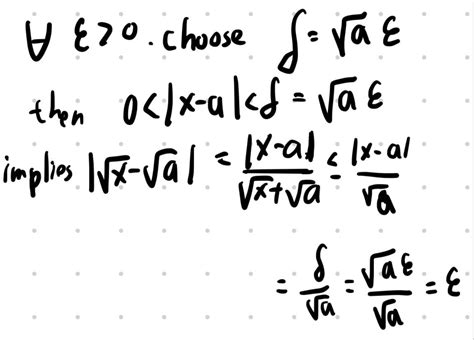 ∀ ε>0. choose δ = √a ε
then 0<|x-a|<δ = √a ε
implies |√x-√a| = |x-a|/(√x+√a) ≤ |x-a|/√a
= δ/√a = √a ε/√a = ε